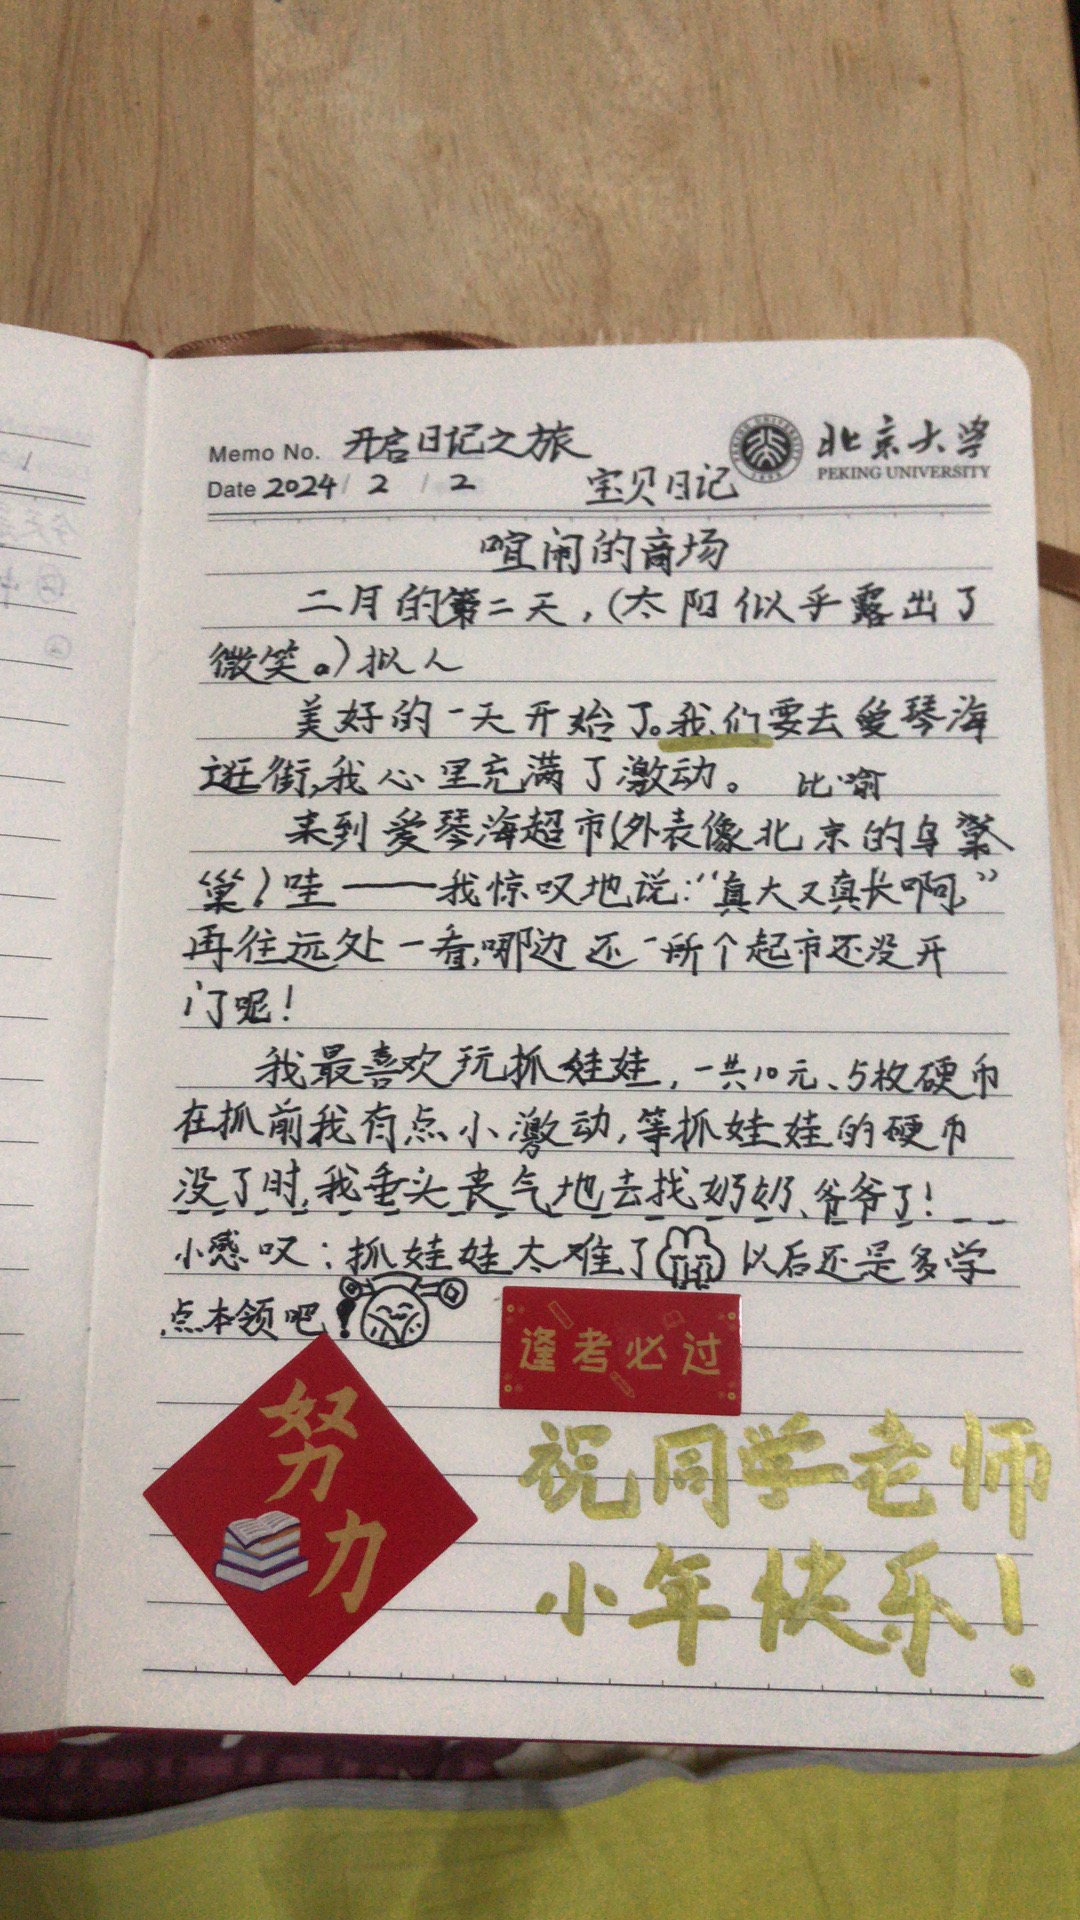 Memo No. 开启日记之旅
北京大学
PEKING UNIVERSITY
Date 2024 / 2 / 2 宝贝日记
喧闹的商场
二月的第二天，(太阳似乎露出了
微笑。)拟人
美好的一天开始了。我们要去爱琴海
逛街,我心里充满了激动。 比喻
来到爱琴海超市(外表像北京的鸟
巢)哇——我惊叹地说:“真大又真长啊,”
再往远处一看,哪边还一所个起市还没开
门呢!
我最喜欢玩抓娃娃，一共10元、5枚硬币
在抓前我有点小激动,等抓娃娃的硬币
没了时,我垂头丧气地去找奶奶、爷爷了!
小感叹:抓娃娃太难了 以后还是多学
点本领吧!
逢考必过
努力
祝同学老师
小年快乐!